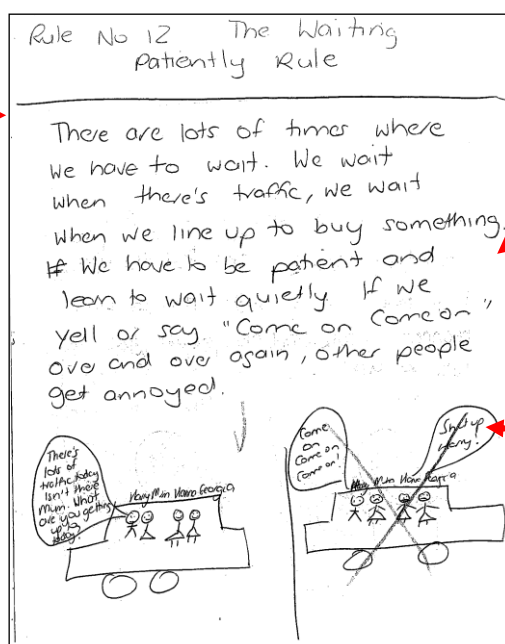 Rule No 12 The Waiting
Patiently Rule
There are lots of times where
we have to wait. We wait
when there's traffic, we wait
when we line up to buy something.
We have to be patient and
learn to wait quietly If we
yell or say "Come on Come on"
over and over again, other people
get annoyed.
There's
lots of
traffic today
Isn't there
Mum. What
are you getting
up to
today.
Harry Mum Georgia
Come
on
Come on
Come on!
Shut up
Harry!
Mum